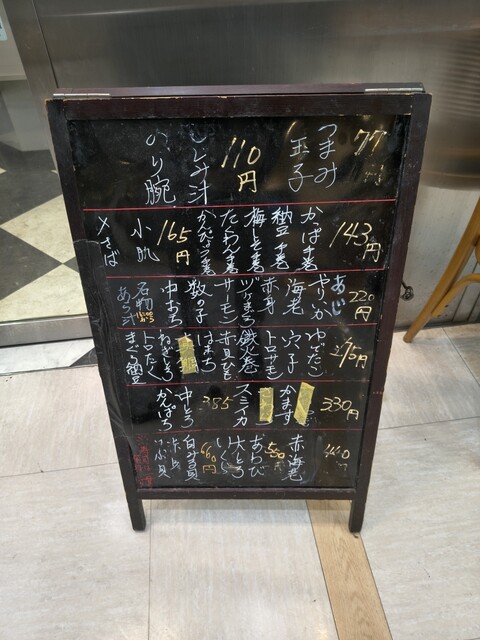 77円
つまみ
玉子
110円
しじみ汁
のり腕
143円
かっぱ巻
納豆巻
梅しそ巻
たくわん巻
かんぴょう巻
165円
小肌
〆さば
220円
あじ
やりいか
海老
赤身
サーモン
数の子
中おち
名物
あら汁
ゆでだこ
穴子
トロサーモン
鉄火巻
赤貝ひも
はまち
ねぎとろ
トロたく
まぐろ納豆
330円
かます
スミイカ
385
中とろ
かんぱち
440
赤海老
550
あわび
大とろ
いくら
660円
白みる貝